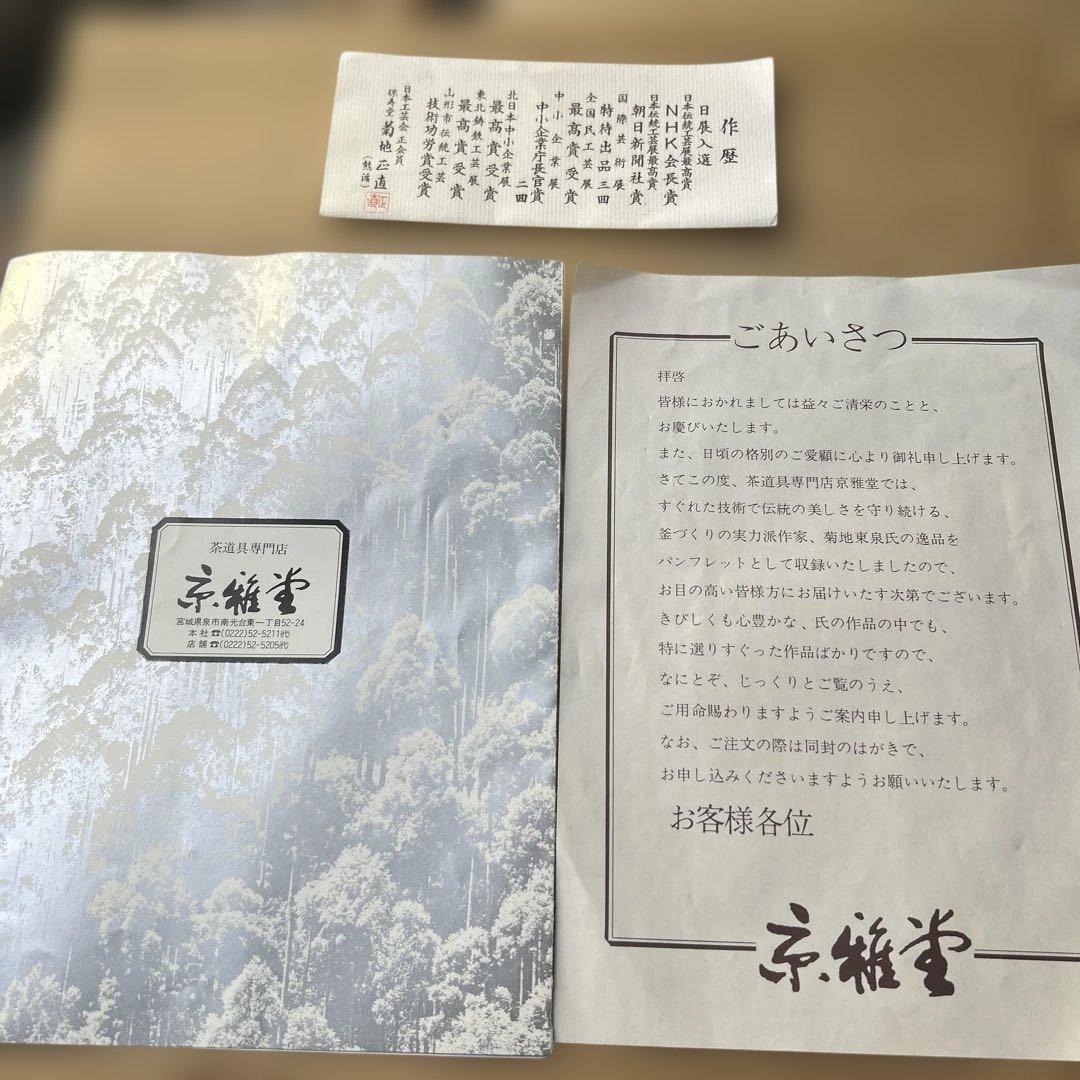 作歴
日展入選
日本伝統工芸展最高賞
NHK会長賞
日本伝統工芸展最高賞
朝日新聞社賞
国際芸術展
特待出品三回
全国民工芸展
最高賞受賞
中小企業展
中小企業庁長官賞
二回
北日本中小企業展
最高賞受賞
東北鋳鉄工芸展
最高賞受賞
山形市伝統工芸
技術功労賞受賞
日本工芸会正会員
菊地正直
茶道具専門店
京雅堂
宮城県泉市南光台東一丁目52-24
本社☎(0222)52-5211㈹
店舗☎(0222)52-5205㈹
ごあいさつ
拝啓
皆様におかれましては益々ご清栄のことと、
お慶びいたします。
また、日頃の格別のご愛顧に心より御礼申し上げます。
さてこの度、茶道具専門店京雅堂では、
すぐれた技術で伝統の美しさを守り続ける、
釜づくりの実力派作家、菊地東泉氏の逸品を
パンフレットとして収録いたしましたので、
お目の高い皆様方にお届けいたす次第でございます。
きびしくも心豊かな、氏の作品の中でも、
特に選りすぐった作品ばかりですので、
なにとぞ、じっくりとご覧のうえ、
ご用命賜わりますようご案内申し上げます。
なお、ご注文の際は同封のはがきで、
お申し込みくださいますようお願いいたします。
お客様各位
京雅堂